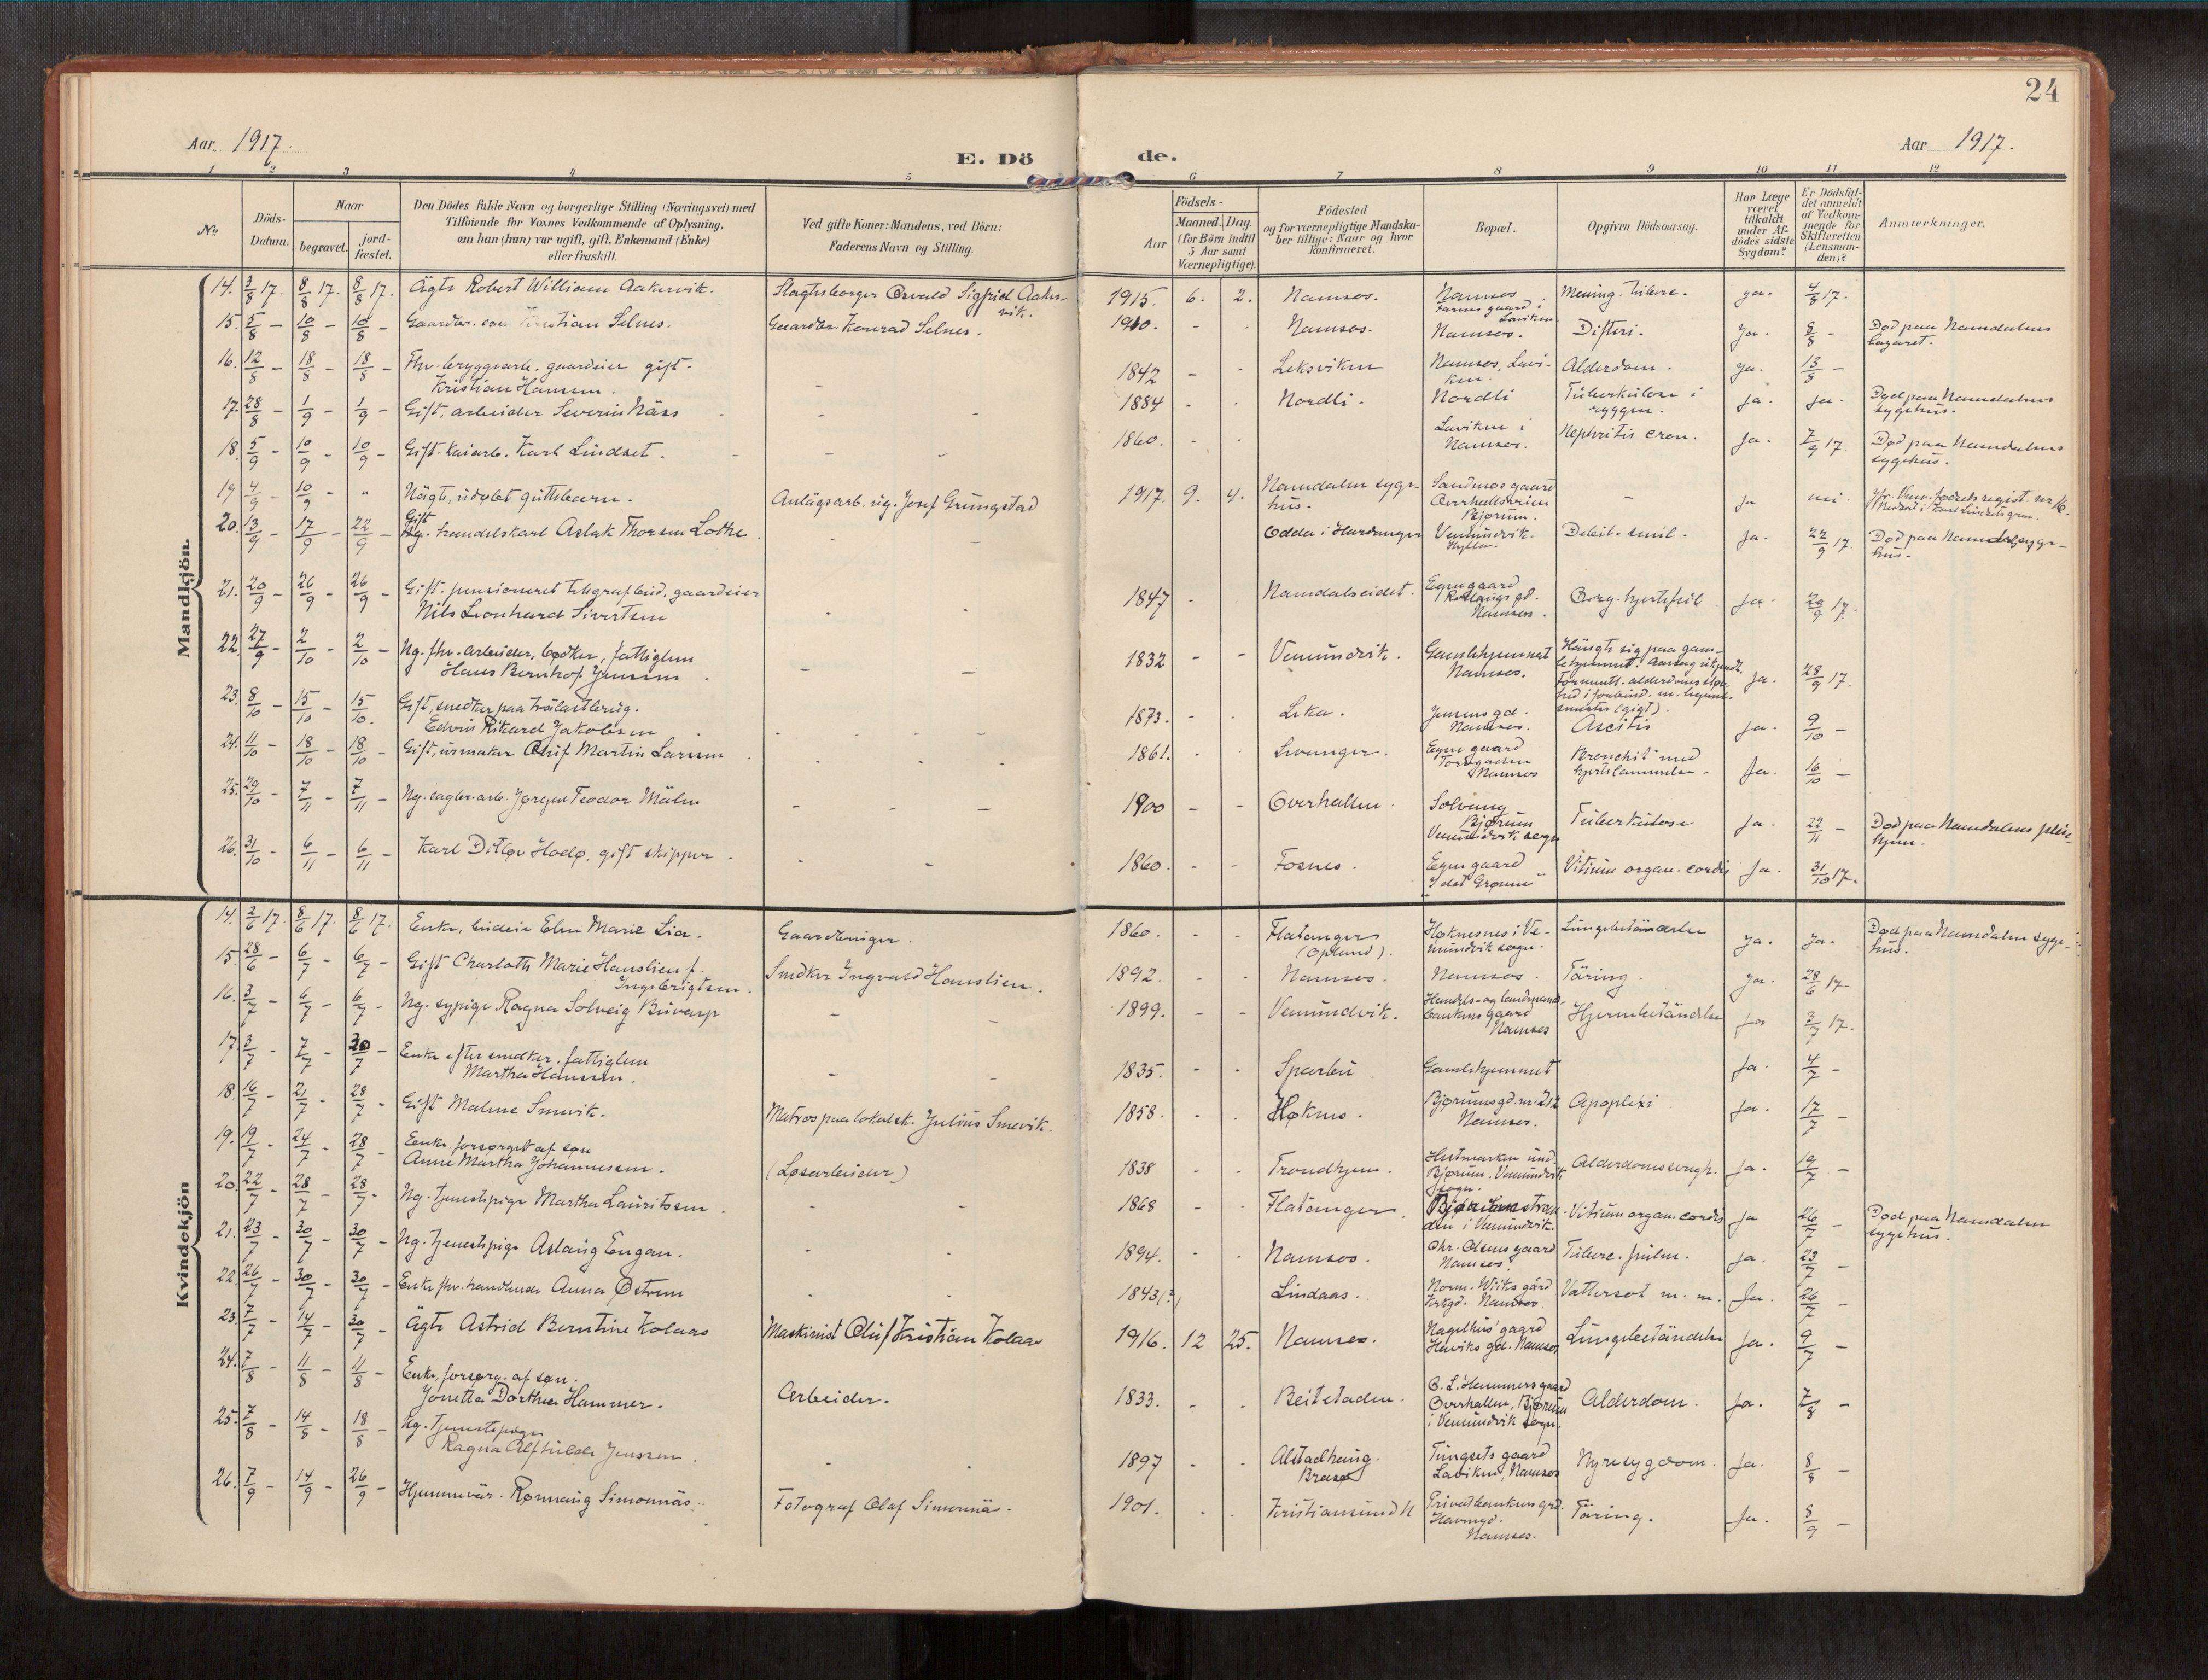 24
Aar. 1917.
E. Dö de.
Aar 1917.
1 2 3 4 5 6 7 8 9 10 11 12
No
Döds-Datum.
Naar
begravet.
jord-fæstet.
Den Dödes fulde Navn og borgerlige Stilling (Næringsvei) med
Tilföiende for Voxnes Vedkommende af Oplysning,
om han (hun) var ugift, gift, Enkemand (Enke)
eller fraskilt.
Ved gifte Koner: Mandens, ved Börn:
Faderens Navn og Stilling.
Aar
Födsels-
Maaned. Dag.
(for Börn indtil
5 Aar samt
Værnepligtige).
Födested
og for værnepligtige Mandska-
ber tillige: Naar og hvor
konfirmeret.
Bopæl.
Opgiven Dödsaarsag.
Har Læge
været
tilkaldt
under Af-
dödes sidste
Sygdom?
Er Dödsfal-
det anmeldt
af Vedkom-
mende for
Skifteretten
(Lensman-
den)?
Anmærkninger.
Mandkjön.
14. 3/8 17. 8/8 17. 8/8 17. Ägte Robert William Aakervik. Slagtesborger Osvald Sigfrid Aaker-vik. 1915. 6. 2. Namsos. Namsos Mening. tuberc. ja. 4/8 17.
15. 5/8 - 10/8 - 10/8 - Gaardbr. søn Kristian Selnes. Gaardbr. Konrad Selnes. 1910. - - Namsos. Namsos. Difteri. Ja. 8/8 - Død paa Namdalens
lazaret.
16. 12/8 - 18/8 - 18/8 - Fhv. bryggearb. gaardeier gift.
Kristian Hansen. - 1842 - - Leksviken Namsos, Lavi-
ken. Alderdom. ja. 13/8 -
17. 28/8 - 1/9 - 1/9 - Gift, arbeider Severin Näss - - 1884 - - Nordli. Nordli Tüberkülose i
ryggen. ja. ja. Død paa Namdalens
sygehus.
18. 5/9 - 10/9 - 10/9 - Gift. kaiarb. Karl Lindset. - - 1860. - - Laviken i
Namsos. Nephritis cron. Ja. 7/9 17. Død paa Namdalens
sygehus.
19 4/9 - 10/9 - " Uägte, udøbt guttebarn. Anlägsarb. ug. Josef Grüngstad 1917. 9. 4. Namdalen syge-
hus. Sandmos gaard
Bjørum. - Ja nei.
20. 13/9 - 17/9 - 22/9 - Gift
handelskarl Aslak Thorsen Lothe - - Odda i Hardanger Vemündvik. Ja. 22/9 17. Død paa Namdals syge-
hus.
21. 20/9 - 26/9 - 26/9 - Gift. pensioneret telegrafbud. gaardeier
Nils Leonhard Sivertsen - - 1847 - Namdalseidet. Egen gaard
Namsos. Org. hjertefeil Ja. 29/9 17.
22. 27/9 - 2/10 - 2/10 - Ug. fhv. arbeider, bødker, fattiglem
Hans Bernhof Jensen - - 1832 - - Vemündvik. Gamlehjemmet
Namsos. Hängte sig paa gam-
lehjemmet. Aarsag ukjendt.
smerter (gigt). Ja. 28/9 17.
23. 8/10 - 15/10 - 15/10. Gift, snedker paa träilastbrug.
Edvin Rikard Jakobsen - - - 1873. - - Leka. Jensens gd.
Namsos. Ascitis Ja. 9/10 -
24. 11/10 - 18/10 - 18/10 - Gift, urmaker Oluf Martin Larsen - - 1861. - - Levanger. Egen gaard
Namsos Bronchit med
hjertelammelse. Ja. 16/10 -
25. 29/10 - 7/11 - 7/11 - Ug. sagbr. arb. Jørgen Teodor Mälen - - - 1900 - - Overhallen. Solvang
Bjørum
Vemundvik sogn Tüberkulose Ja. 22/11 - Død paa Namdalens pleie-
hjem.
26. 31/10 - 6/11 - 6/11 - Karl Ditløv Hodø, gift skipper. - - 1860. - - Fosnes. Egen gaard
Vitium organ. cordis Ja. 31/10 17.
Kvindekjön
14. 2/6 17. 8/6 17. 8/6 17. Enke, Elen Marie Lia. Gaardbruger. 1860. - - Flatanger
(Opland). Høknesnes i Ve-
mündvik sogn. Lüngebetändelse ja. ja. Død paa Namdalen syge-
hus.
15. 28/6 - 6/7 - 6/7 - Gift Charlotte Marie Hanslien f.
Ingebrigtsen. Snedker Ingvald Hanslien. 1892. - - Namsos. Namsos. Täring. ja. 28/6 17.
16. 3/7 - 6/7 - 6/7 - Ug. sypige Ragna Solveig Büvarp - - 1899. - - Vemündvik. Handels- og landmands-
bankens gaard
Namsos Hjernebetändelse ja 3/7 17.
17. 3/7 - 7/7 - 30/7 - Enke efter snedker. fattiglem
Martha Hansen. - - 1835. - - Sparbü Gamlehjemmet Ja. 4/7 -
18. 16/7 - 21/7 - 28/7 - Gift Malene Smevik. Matros paa lokalsk. Julius Smevik. 1858. - - Høknes. Bjørums gd.
Namsos. Apoplexi Ja. 17/7 -
19. 19/7 - 24/7 - 28/7 - Enke, forsørget af søn
Anne Martha Johannessen. (Løsarbeider) 1838 - - Trondhjem. Bjørum. Vemündvik
sogn. Alderdomssvagh. Ja. 19/7 -
20. 22/7 - 28/7 - 28/7 - Ug. tjenestepige Martha Lauritssen. - - 1868 - - Flatanger. Bjørum stran-
den i Vemundvik. Vitium organ. cordis Ja 26/7 - Død paa Namdalen
sygehus.
21. 23/7 - 30/7 - 30/7 - Ug. tjenestepige Aslaug Engan. - - 1894. - - Namsos. Chr. Olsens gaard
Namsos. Tüberc. pulm. Ja. 23/7 -
22. 26/7 - 30/7 - 30/7 - Enke fhv. handlende Anna Østrem - - 1843(?) Lindaas. Norm. Wiiks gård
Kirkgd. Namsos. Vattersot m. m. Ja. 26/7 -
23. 7/7 - 14/7 - 30/7 - Ägte Astrid Berntine Kolaas Maskinist Oluf Kristian Kolaas 1916. 12 25. Namsos. Nagelhus' gaard
Haviks gd. Namsos Lüngebetändelse Ja. 9/7 -
24. 7/8 - 11/8 - 11/8 - Enke, forsørg. af søn.
Jonetta Dorthea Hammer. Arbeider. 1833. - - Beitstaden. O. L. Hammers gaard
Overhallen, Bjørum
i Vemündvik sogn. Alderdom. Ja. 7/8 -
25. 7/8 - 14/8 - 18/8 - Ug. Tjenestepige
Ragna Alfhilde Jenssen. - - 1897 - - Alstadhaug. Tüngsets gaard
Laviken, Namsos Nyresygdom. Ja. 8/8 -
26. 7/9 - 14/9 - 26/9 - Hjemmevär. Rønnaug Simonnäs. Fotograf Olaf Simonnäs. 1901. - - Kristiansund N Privatbankens grd.
Havnegd.
Namsos. Täring. Ja. 8/9 -